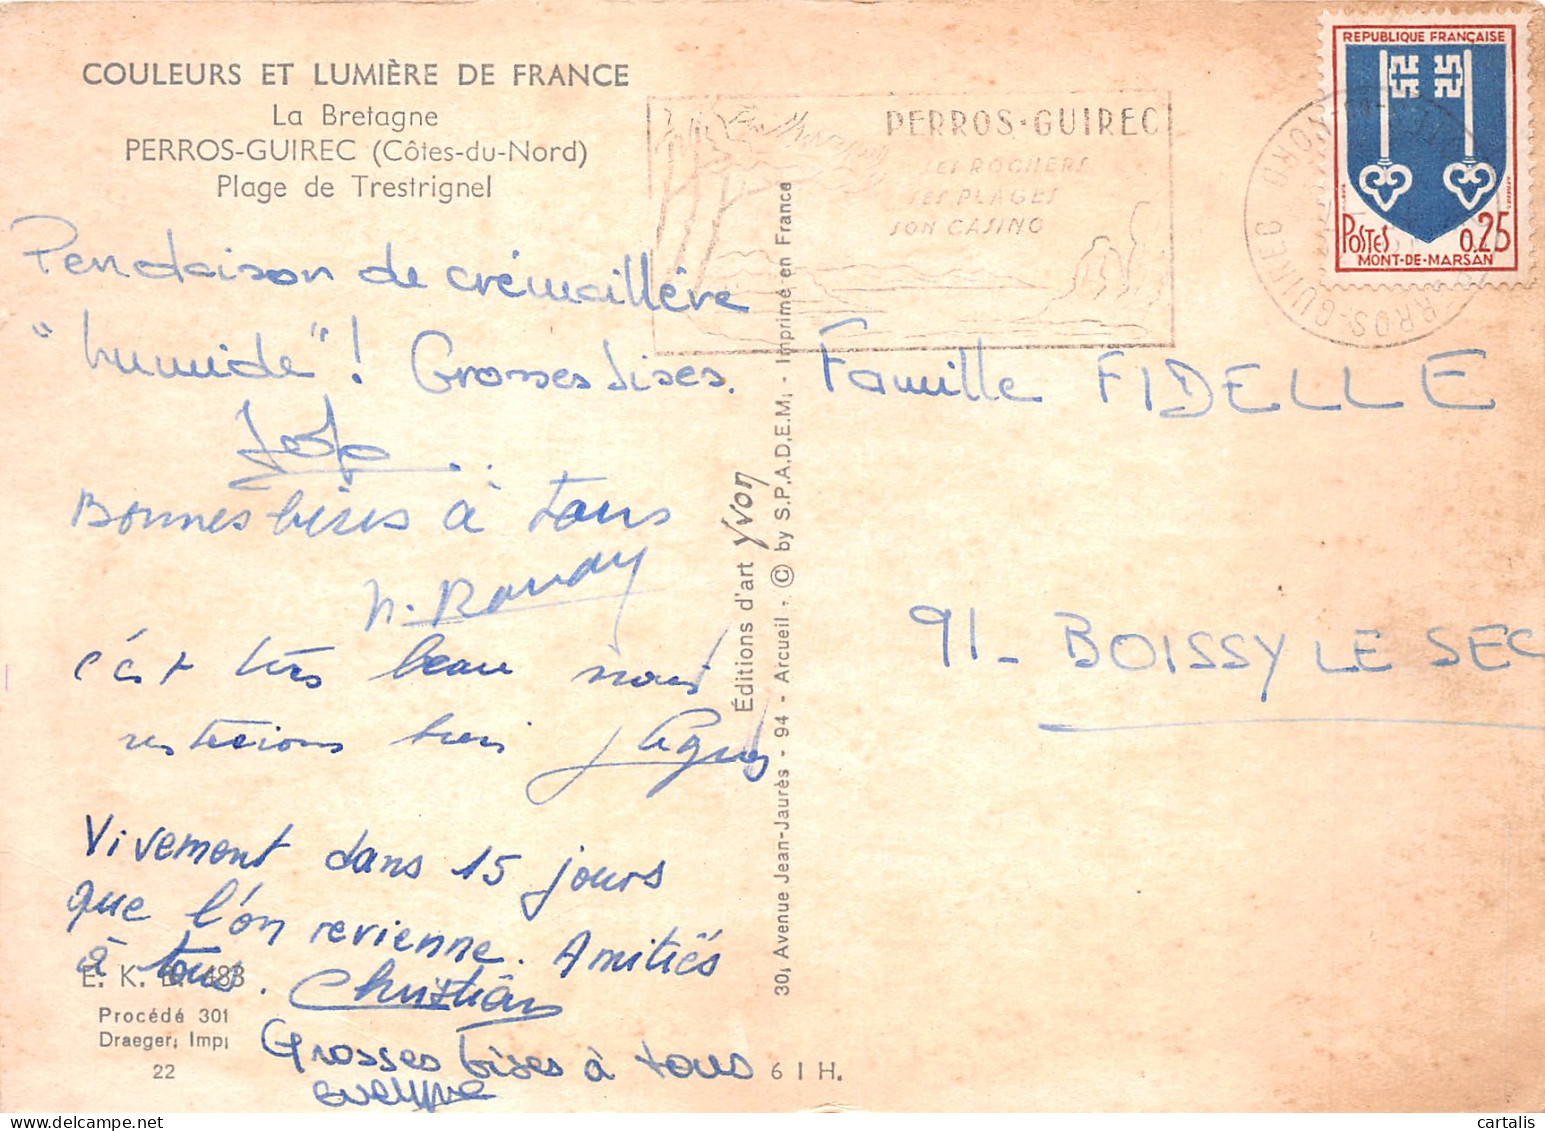 COULEURS ET LUMIÈRE DE FRANCE
La Bretagne
PERROS-GUIREC (Côtes-du-Nord)
Plage de Trestrignel
PERROS-GUIREC
SES ROCHERS
SES PLAGES
SON CASINO
REPUBLIQUE FRANÇAISE
POSTES 0.25
MONT-DE-MARSAN
Pendaison de crémaillère
"humide"! Grosses bises.
Bonnes bises à tous
c'est très beau nous
resterions bien Agnès
Vivement dans 15 jours
que l'on revienne. Amitiés
à tous. Christian
Grosses bises à tous
Evelyne
E. K. B. 483
Procédé 301
Draeger, Imp,
22
6 I H.
Éditions d'art Yvon
30, Avenue Jean-Jaurès - 94 - Arcueil - © by S.P.A.D.E.M, - Imprimé en France
Famille FIDELLE
91- BOISSY LE SEC